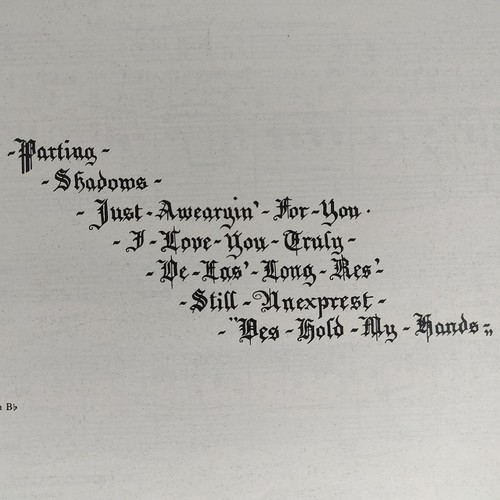 -Parting-
-Shadows-
-Just-Awearyin'-For-You.
-I-Love-You-Truly-
-De-Las'-Long-Res'-
-Still-Unexprest-
-"Des-Hold-My-Hands-"
B♭